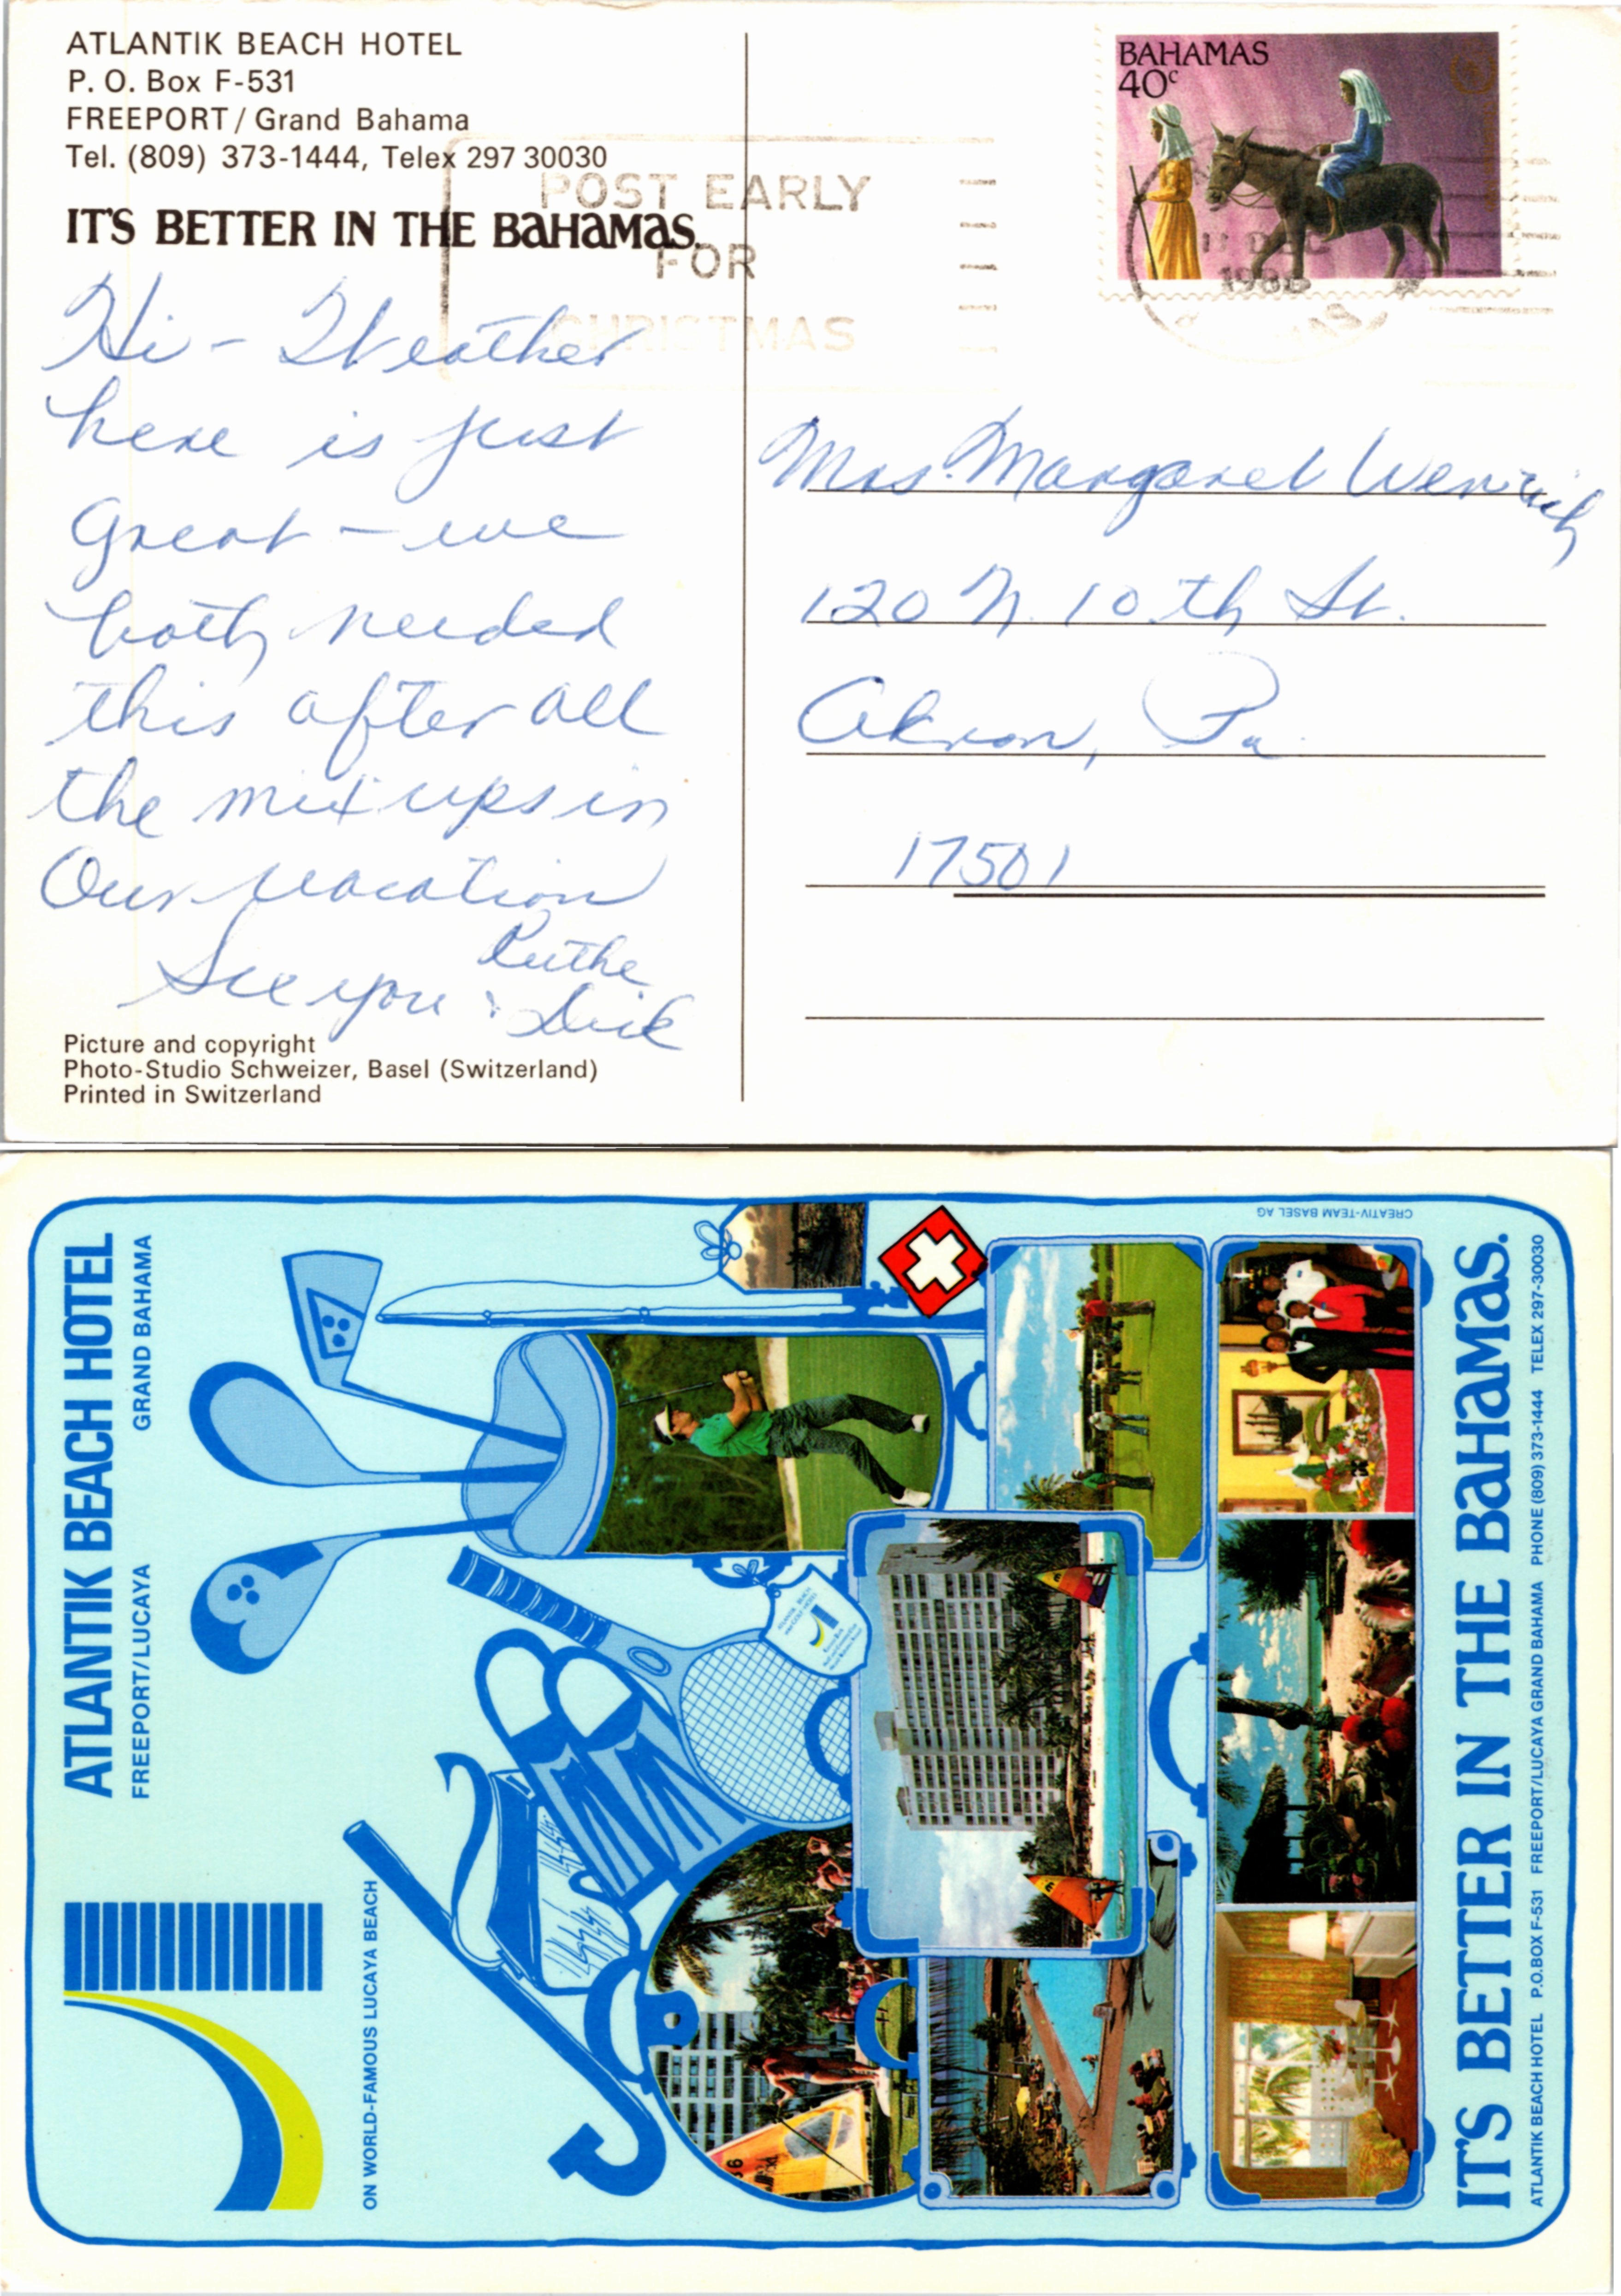 ATLANTIK BEACH HOTEL
P. O. Box F-531
FREEPORT / Grand Bahama
Tel. (809) 373-1444, Telex 297 30030
IT'S BETTER IN THE BaHaMas.
POST EARLY
FOR
CHRISTMAS
BAHAMAS
40c
11 DEC
Hi - Weather
here is just
great - we
both needed
this after all
the mix ups in
Our vacation
See you
Ruthe
& Dick
Mrs. Margaret Wenrich
120 N. 10th St.
Akron, Pa.
17501
Picture and copyright
Photo-Studio Schweizer, Basel (Switzerland)
Printed in Switzerland
ATLANTIK BEACH HOTEL
FREEPORT/LUCAYA GRAND BAHAMA
ON WORLD-FAMOUS LUCAYA BEACH
CREATIV-TEAM BASEL AG
IT'S BETTER IN THE BaHaMas.
ATLANTIK BEACH HOTEL P.O.BOX F-531 FREEPORT/LUCAYA GRAND BAHAMA PHONE (809) 373-1444 TELEX 297-30030